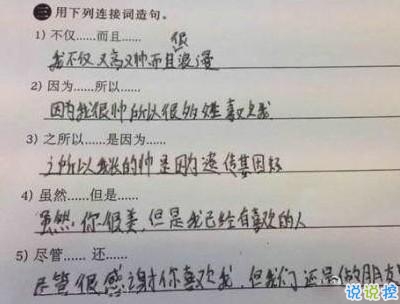 三 用下列连接词造句。
1) 不仅……而且……
我不仅又高又帅而且很浪漫
2) 因为……所以……
因为我很帅所以很多女生喜欢我
3) 之所以……是因为……
之所以我长的帅是因为遗传基因好
4) 虽然……但是……
虽然你很美,但是我已经有喜欢的人
5) 尽管…… 还……
尽管很感谢你喜欢我,但我们还是做朋友
说说控